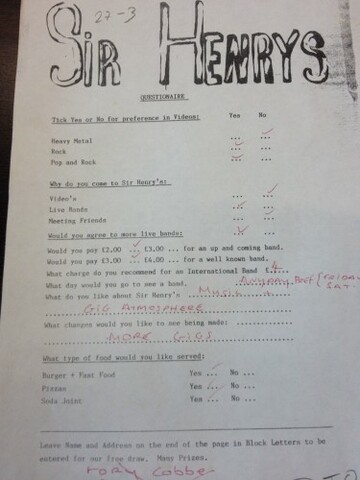 27-3
SIR HENRYS
QUESTIONAIRE
Tick Yes or No for preference in Videos: Yes No
Heavy Metal ... ...
Rock ... ...
Pop and Rock ... ...
Why do you come to Sir Henry's:
Video's ... ...
Live Bands ... ...
Meeting Friends ... ...
Would you agree to more live bands: ...
Would you pay £2.00 ... £3.00 ... for an up and coming band.
Would you pay £3.00 ... £6.00 ... for a well known band.
What charge do you recommend for an International Band £.4..
What day would you go to see a band.
What do you like about Sir Henry's MUSIC
GIG ATMOSPHERE
What changes would you like to see being made:
MORE GIGS
What type of food would you like served:
Burger + Fast Food Yes ... No ...
Pizzas Yes ... No ...
Soda Joint Yes ... No ...
Leave Name and Address on the end of the page in Block Letters to be
entered for our free draw. Many Prizes.